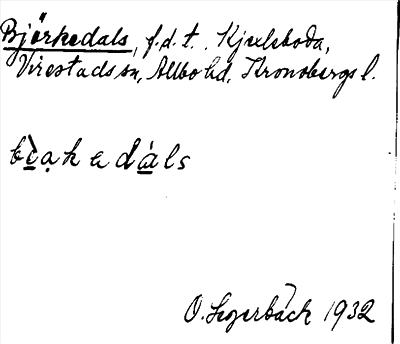 Björkedals, f.d.t. Kjelsboda,
Virestads sn, Allbo hd, Kronobergs l.
O. Segerbäck 1932